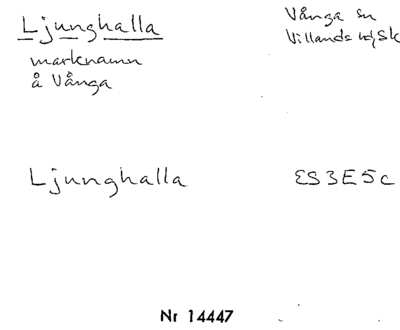 Ljunghalla
Vånga sn
Villands hd, Sk
marknamn
å Vånga
Ljunghalla
ES3E5c
Nr 14447